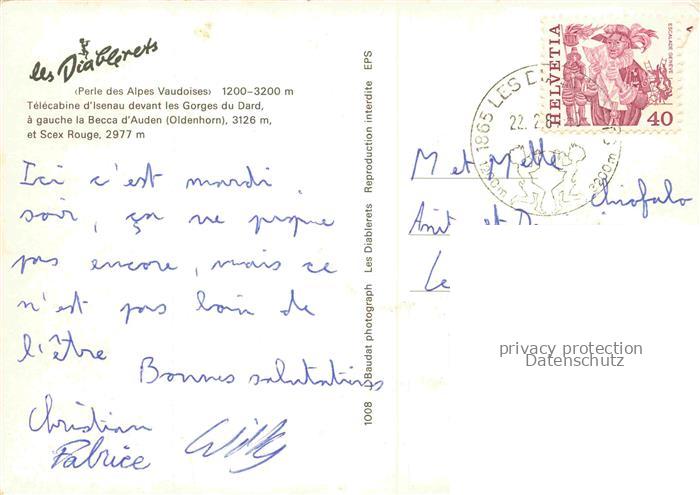 les Diablerets
(Perle des Alpes Vaudoises) 1200-3200 m
Télécabine d'Isenau devant les Gorges du Dard,
à gauche la Becca d'Auden (Oldenhorn), 3126 m,
et Scex Rouge, 2977 m
Ici c'est mardi
soir, ça ne
pas encore, mais ce
n'est pas loin de
l'être
Bonnes salutations
Christian
Fabrice Willy
1008 Baudat photograph Les Diablerets Reproduction interdite EPS
HELVETIA
ESCALADE GENÈVE
40
1865 LES
22. 2
1200m
M et Melle
Chiofalo
et
Le
privacy protection
Datenschutz